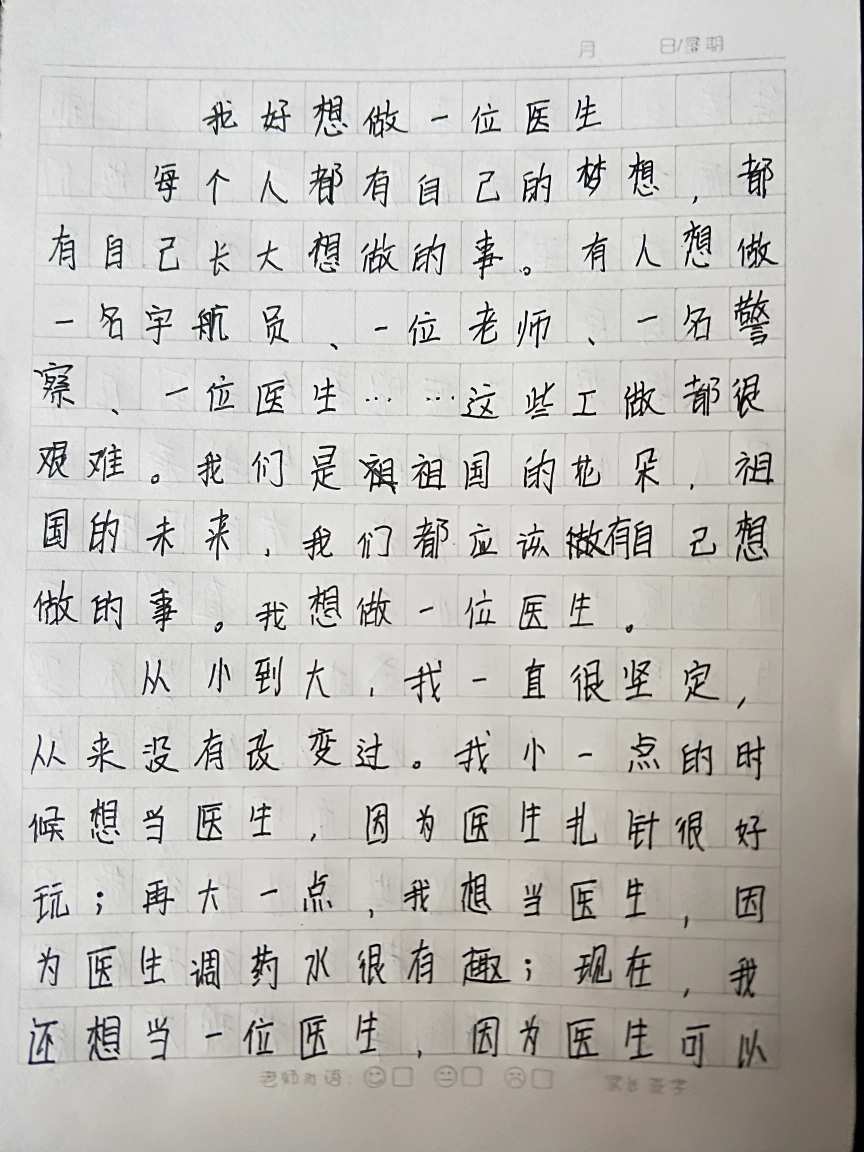 月 日/星期
我好想做一位医生
每个人都有自己的梦想，都
有自己长大想做的事。有人想做
一名宇航员、一位老师、一名警
察、一位医生……这些工做都很
艰难。我们是祖祖国的花朵，祖
国的未来，我们都应该做有自己想
做的事。我想做一位医生。
从小到大，我一直很坚定，
从来没有改变过。我小一点的时
候想当医生，因为医生扎针很好
玩；再大一点，我想当医生，因
为医生调药水很有趣；现在，我
还想当一位医生，因为医生可以
老师的话： 家长签字